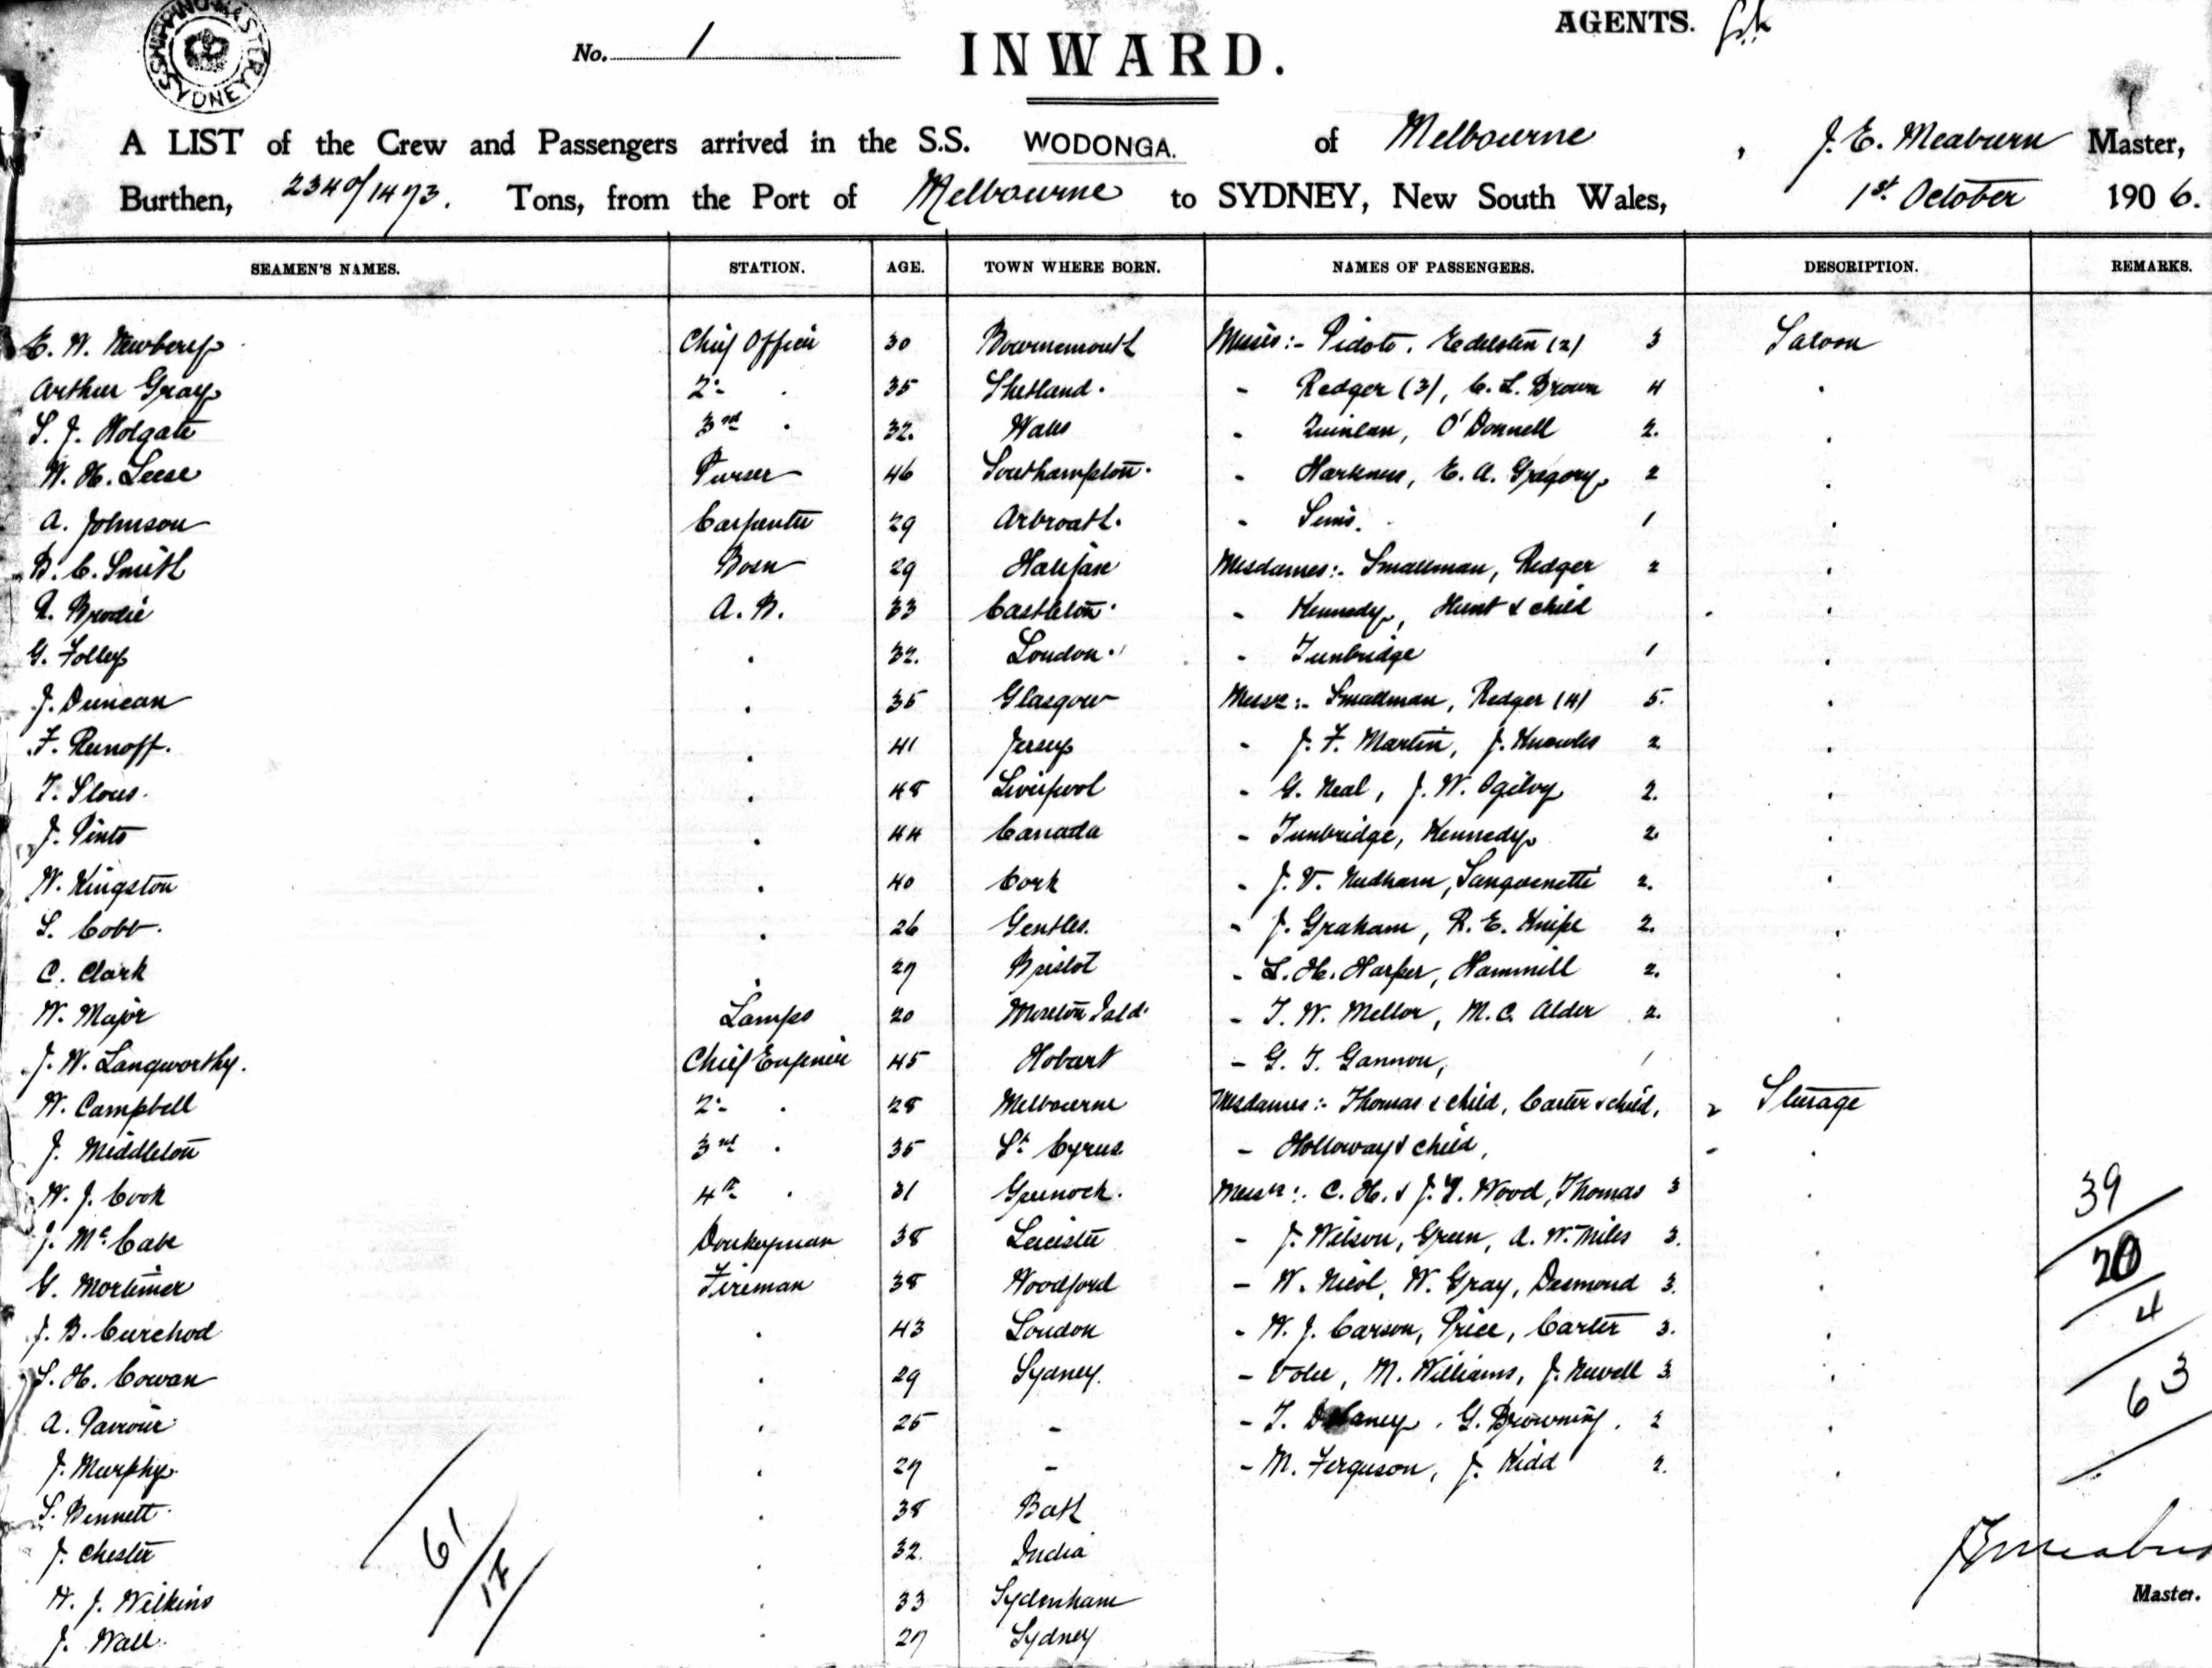 SHIPPING MASTER
SYDNEY
AGENTS.
No. 1
INWARD.
A LIST of the Crew and Passengers arrived in the S.S. WODONGA. of Melbourne, J. E. Meaburn Master,
Burthen, 2340/1473. Tons, from the Port of Melbourne to SYDNEY, New South Wales, 1st October 1906.
SEAMEN'S NAMES. STATION. AGE. TOWN WHERE BORN. NAMES OF PASSENGERS. DESCRIPTION. REMARKS.
E. W. Newbery Chief Officer 30 Bournemouth Misses:- Pidoto, Edelsten (2) 3 Saloon
Arthur Gray 2- . 35 Shetland. - Redger (3), C. L. Brown 4 .
S. J. Holgate 3rd . 32. Wales - Quinlan, O'Donnell 2. .
W. H. Leese Purser 46 Southampton. - Harkness, E. A. Gregory 2 .
A. Johnson Carpenter 29 Arbroath. - Sims. 1 .
B. C. Smith Bosn 29 Halifax Mesdames:- Smallman, Redger 2 .
Brodie A. B. 33 Castleton. - Kennedy, Hunt & child . .
G. Folley . 32. London. - Tunbridge 1 .
J. Duncan . 35 Glasgow Messrs:- Smallman, Redger (4) 5. .
F. Renoff. . 41 Jersey - J. F. Martin, J. Knowles 2 .
T. Slous. . 48 Liverpool - G. Neal, J. W. Ogilvy 2. .
J. Pinto . 44 Canada - Tunbridge, Kennedy 2 .
W. Kingston . 40 Cork - J. V. Needham, Sanguinetti 2. .
S. Cobb. . 26 Gentles. - J. Graham, R. E. Knipe 2. .
C. Clark . 27 Bristol - L. H. Harper, Hammill 2. .
W. Major Lamps 20 Moreton Isld. - T. W. Mellor, M. C. Alder 2. .
J. W. Langworthy. Chief Engineer 45 Hobart - G. T. Gannon, 1
W. Campbell 2- . 28 Melbourne Mesdames:- Thomas & child, Carter & child, 2 Steerage
J. Middleton 3rd . 35 St. Cyrus - Holloway & child, - .
W. J. Cook 4th . 31 Greenock. Messrs:. C. H. & J. T. Wood, Thomas 3 .
J. McCabe Donkeyman 38 Leicester - J. Wilson, Green, A. W. Miles 3. . 39
G. Mortimer Fireman 38 Woodford - W. Nicol, W. Gray, Desmond 3. . 20
J. B. Curchod . 43 London - W. J. Carson, Price, Carter 3. . 4
S. H. Cowan . 29 Sydney. - M. Williams, J. Newell 3. . 63
A. . 25 - - T. Delaney, G. Browning. 2 .
J. Murphy. . 27 - - M. Ferguson, J. Kidd 2. .
S. Bennett. . 38 Bath
J. Chester . 32. India
H. J. Wilkins . 33 Sydenham
Master.
J. Wall. . 27 Sydney
61
17